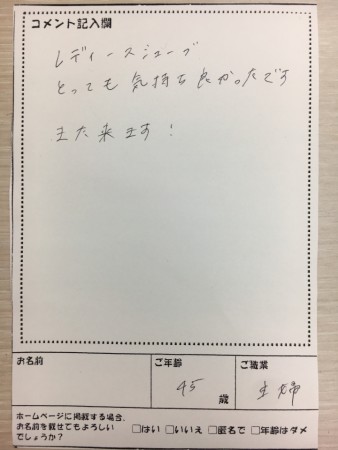 コメント記入欄
レディースシェーブ
とっても気持ち良かったです
また来ます!
お名前
ご年齢
ご職業
45
歳
主婦
ホームページに掲載する場合、
お名前を載せてもよろしい
でしょうか?
□はい □いいえ □匿名で □年齢はダメ